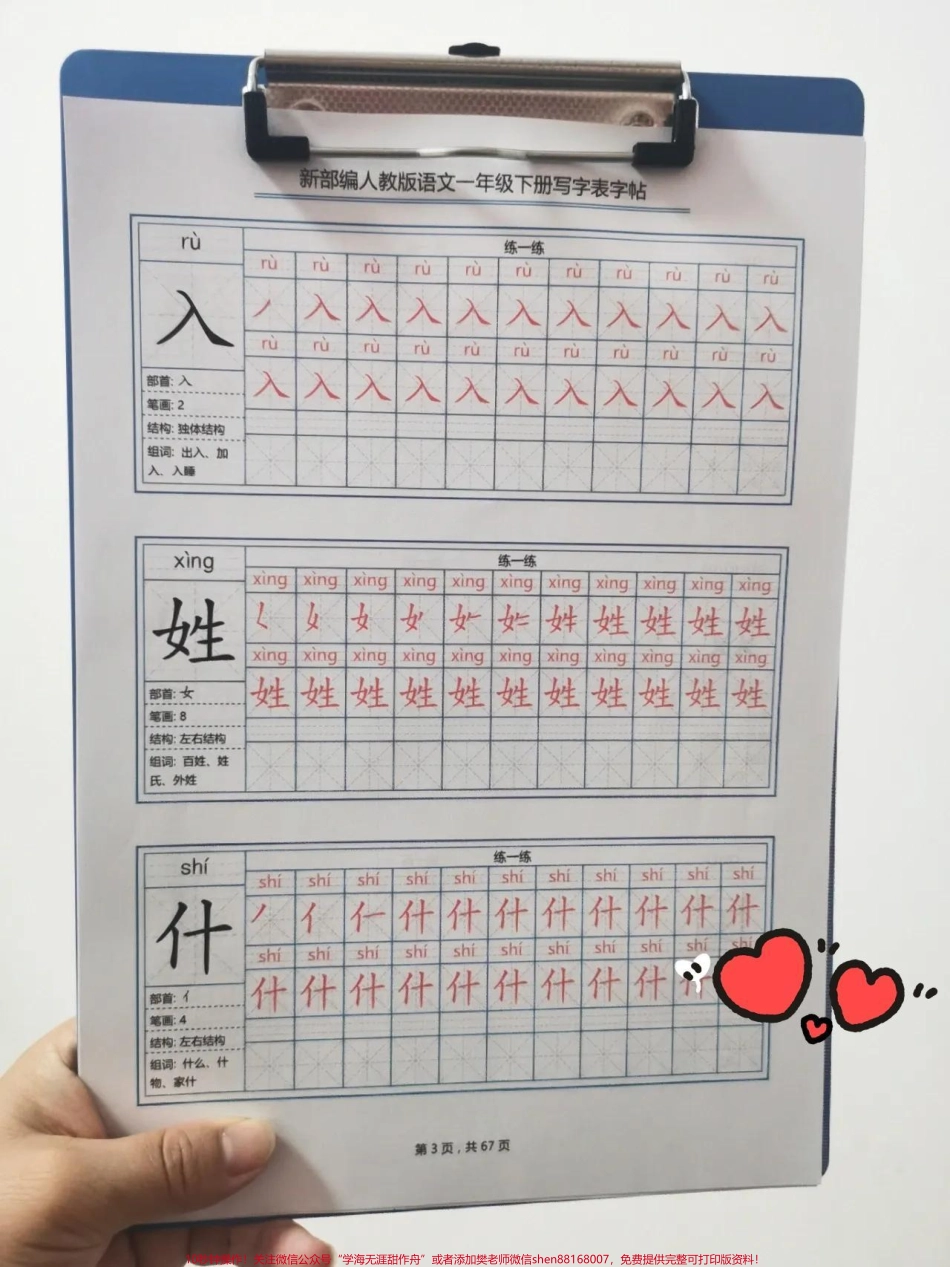 新部编人教版语文一年级下册写字表字帖
rù
练一练
rù rù rù rù rù rù rù rù rù rù rù
入
丿 入 入 入 入 入 入 入 入 入 入
rù rù rù rù rù rù rù rù rù rù rù
入 入 入 入 入 入 入 入 入 入 入
部首: 入
笔画: 2
结构: 独体结构
组词: 出入、加
入、入睡
xìng
练一练
xìng xìng xìng xìng xìng xìng xìng xìng xìng xìng xìng
姓
姓 姓 姓 姓
xìng xìng xìng xìng xìng xìng xìng xìng xìng xìng xìng
姓 姓 姓 姓 姓 姓 姓 姓 姓 姓 姓
部首: 女
笔画: 8
结构: 左右结构
组词: 百姓、姓
氏、外姓
shí
练一练
shí shí shí shí shí shí shí shí shí shí shí
什
丿 亻 什 什 什 什 什 什 什 什
shí shí shí shí shí shí shí shí shí shí shí
什 什 什 什 什 什 什 什 什
部首: 亻
笔画: 4
结构: 左右结构
组词: 什么、什
物、家什
第 3 页 , 共 67 页
关注微信公众号“学海无涯甜作舟”或者添加樊老师微信shen88168007，免费提供完整可打印版资料！